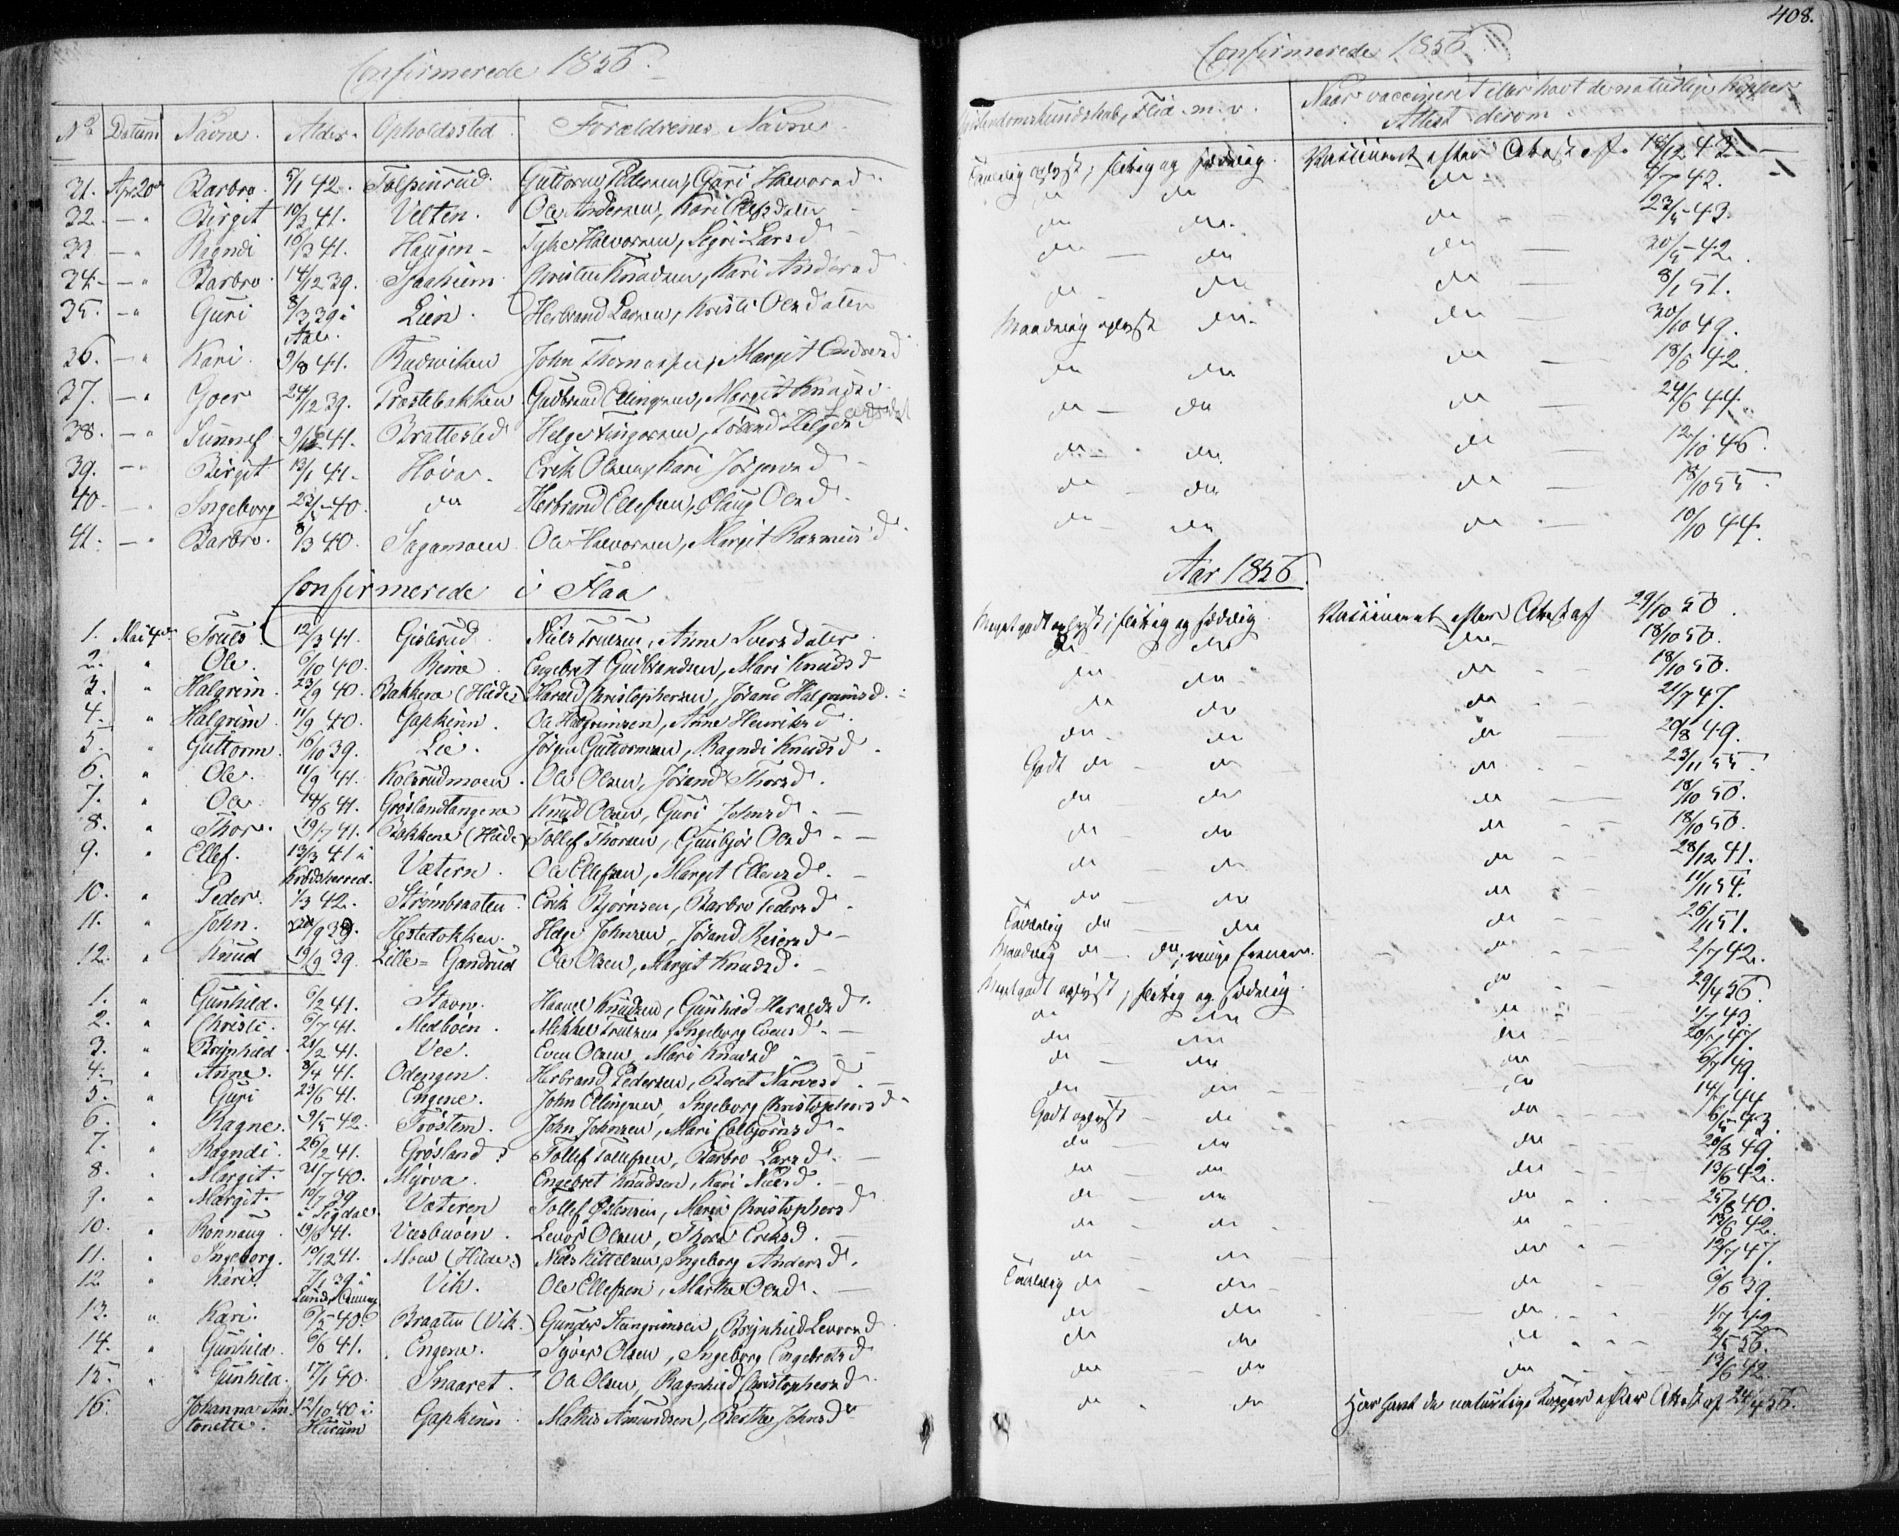 Confirmerede 1856.
No Datum Navne. Alder. Opholdssted. Forældrenes Navne.
31. Apr 20de Barbro. 5/1 42. Tolpinrud. Guttorm Pedersen, Guri Halvorsd.
32. - " Birgit 10/3 41. Velten. Ole Andersen, Kari Olsdatter
33 - " Ragndi 16/3 41. Haugen - Halvorsen, Sigri Larsd.
34. - " Barbro. 14/12 39. Christen Knudsen, Kari Andersd.
35. - " Guri 8/3 39 i Aal. Lien. Herbrand Larsen, Kristi Olsdatter
36. - " Kari. 9/8 41. John Thomassen, Margit
37. - " Goro 24/12 39. Præstebakken Gulbrand Ellingsen, Margit Knudsd.
38. - " Sunnef 41. Brattested Helge Tingorsen, Jörand Helgesd
39. - " Birgit 13/1 41. Hova. Erik Olsen, Kari Jörgensd. -
40. - " Ingeborg 23/5 40. do Herbrand Ellefsen, Olaug Olsd.
41. - " Barbro. 8/3 40. Sagamoen Ole Halvorsen, Margit Rasmusd.
Confirmerede i Flaa
1. Mai 4de Truls. 12/3 41. Gislerud. Niels Trulsen, Anne Iversdatter
2. " Ole. 6/10 40. Reine Engebret Gulbrandsen, Mari Knudsd
3. " Halgrim. 23/9 40. Bakkene (Hilde) Harald Christophersen, Jörand Halgrimsd.
4. " Halgrim. 11/9 40. Gapkinn. Ole Halgrimsen, Anne Henriksd.
5. " Guttorm. 16/10 39. Lie. Jörgen Guttormsen, Ragndi Knudsd.
6. " Ole. 11/9 41. Kolsrudmoen. Ole Olsen, Jörand Thorsd.
7. " Ole 14/6 41. Gröslandtangene Knud Olsen, Guri Johnsd.
8. " Thor. 19/7 41. Bakkene (Hilde) Tollef Thorsen, Gunbjör Olsd.
9. " Ellef. 13/3 41 i Krödsherred. Vætern. Ole Ellefsen, Margit Ellensd.
10. " Peder. 1/3 42. Strömbraaten. Erik Bjornsen, Barbro Pedersd.
11. " John. 9 39. Hestedokken. Helge Johnsen, Jörand Reiersd.
12. " Knud 19/9 39. Lille-Gandrud Ole Olsen, Margit Knudsd.
1. " Gunhild. 6/2 41. Stavn. Knudsen, Gunhild Haraldsd.
2. " Christi. 6/7 41. Medboen. Mikkel Trulsen, Ingeborg Evensd.
3. " Brynhild. 21/2 41. Vee. Even Olsen, Mari Knudsd
4. " Anne. 8/4 41. Odengen. Herbrand Pedersen, Beret Narvesd.
5. " Guri 23/6 41. Engene. John Ellingsen, Ingeborg Christophersd.
6. " Ragne. 9/5 42. Tröstem. John Johnsen, Mari Colbjornsd.
7. " Ragndi. 26/2 41. Grösland. Tollef Tollefsen, Barbro Larsd.
8. " Margit. 21/7 40. Myrva. Engebret Knudsen, Kari Nielsd.
9. " Margit. 10/7 39 i Sigdal. Væteren Tollef Östensen, Maria Christophersd.
10. " Rönnaug. 19/6 41. Væsbuøen. Levor Olsen, Thora Eriksd.
11. " Ingeborg. 10/12 41. Moen (Hilde.) Niels Kittelsen, Ingeborg Andersd.
12 " Karit. 7/1 39 i Vik. Ole Ellefsen, Martha Olsd.
13. " Kari. 6/5 40. Braaten (Vik.) Gunder Steingrimsen, Brynhild Levorsd
14. " Gunhild. 6/6 41. Engene. Syver Olsen, Ingeborg Engebretsd
15. " Gunhild. 17/1 40. Snaaret. Ole Olsen, Ragnhild Christophersd.
16. Johanna Antonette. 12/10 40 i Hurum Gapkinn Mathis Amundsen, Berthe Johnsd.
408.
Confirmerede 1856
Christendomskundskab, Flid m. v. Naar vaccineret eller havt de naturlige Kopper Attest derom.
Temmelig oplyst; flittig og sædelig. Vaccineret efter Attest af 18/12 42
do do do 7 42.
do do. do 23/5 43
do do do 30/5 42.
do do do 8/1 51.
Maadelig oplyst do. do 30/10 49.
do do do 18/6 42
do do do 24/6 44.
do do do 12/10 46.
do do do 18/10 55.
do do do 10/10 44.
Aar 1856.
Meget godt oplyst; flittig og sædelig. Vaccineret efter Attest af 29/10 50.
do do do 18/10 50.
do do do 18/10 50.
do do do 21/7 47.
do do do 20/8 49.
Godt do do do 23/11 55.
do do do 18/10 50.
do do do 18/10 50.
do do do 28/12 41.
do do do 11/11 54.
Temmelig do do do 26/1 51.
Maadelig do. do, ringe Evner. do 2/7 42.
Meget godt oplyst; flittig og sædelig. do 29/4 56.
do do do 1/7 43.
do do do 20/7 47.
do do do 6/7 49.
do do do 14/1 44
Godt oplyst do do 6/5 43.
do do do 20/8 49.
do do do 13/6 42.
do do do 25/8 40.
do do do 18/6 42.
do do do 12/7 47.
Temmelig do do do 6/6 39.
do do do 1/7 42
do do do 2/5 56.
do do do 13/6 42.
do do Har havt de naturlige Kopper efter Attest af 24/4 56.